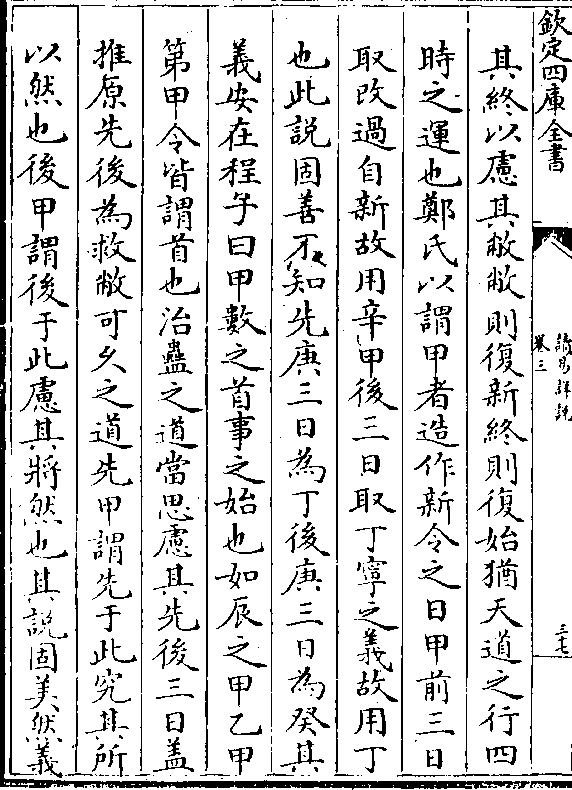 欽定四庫全書
讀易詳說
卷三
三十七
其終以慮其敝敝則復新終則復始猶天道之行四
時之運也鄭氏以謂甲者造作新令之日甲前三日
取改過自新故用辛甲後三日取丁寧之義故用丁
也此說固善不知先庚三日為丁後庚三日為癸其
義安在程子曰甲數之首事之始也如辰之甲乙甲
第甲令皆謂首也治蠱之道當思慮其先後三日盖
推原先後為救敝可久之道先甲謂先于此究其所
以然也後甲謂後于此慮其將然也其說固美然義